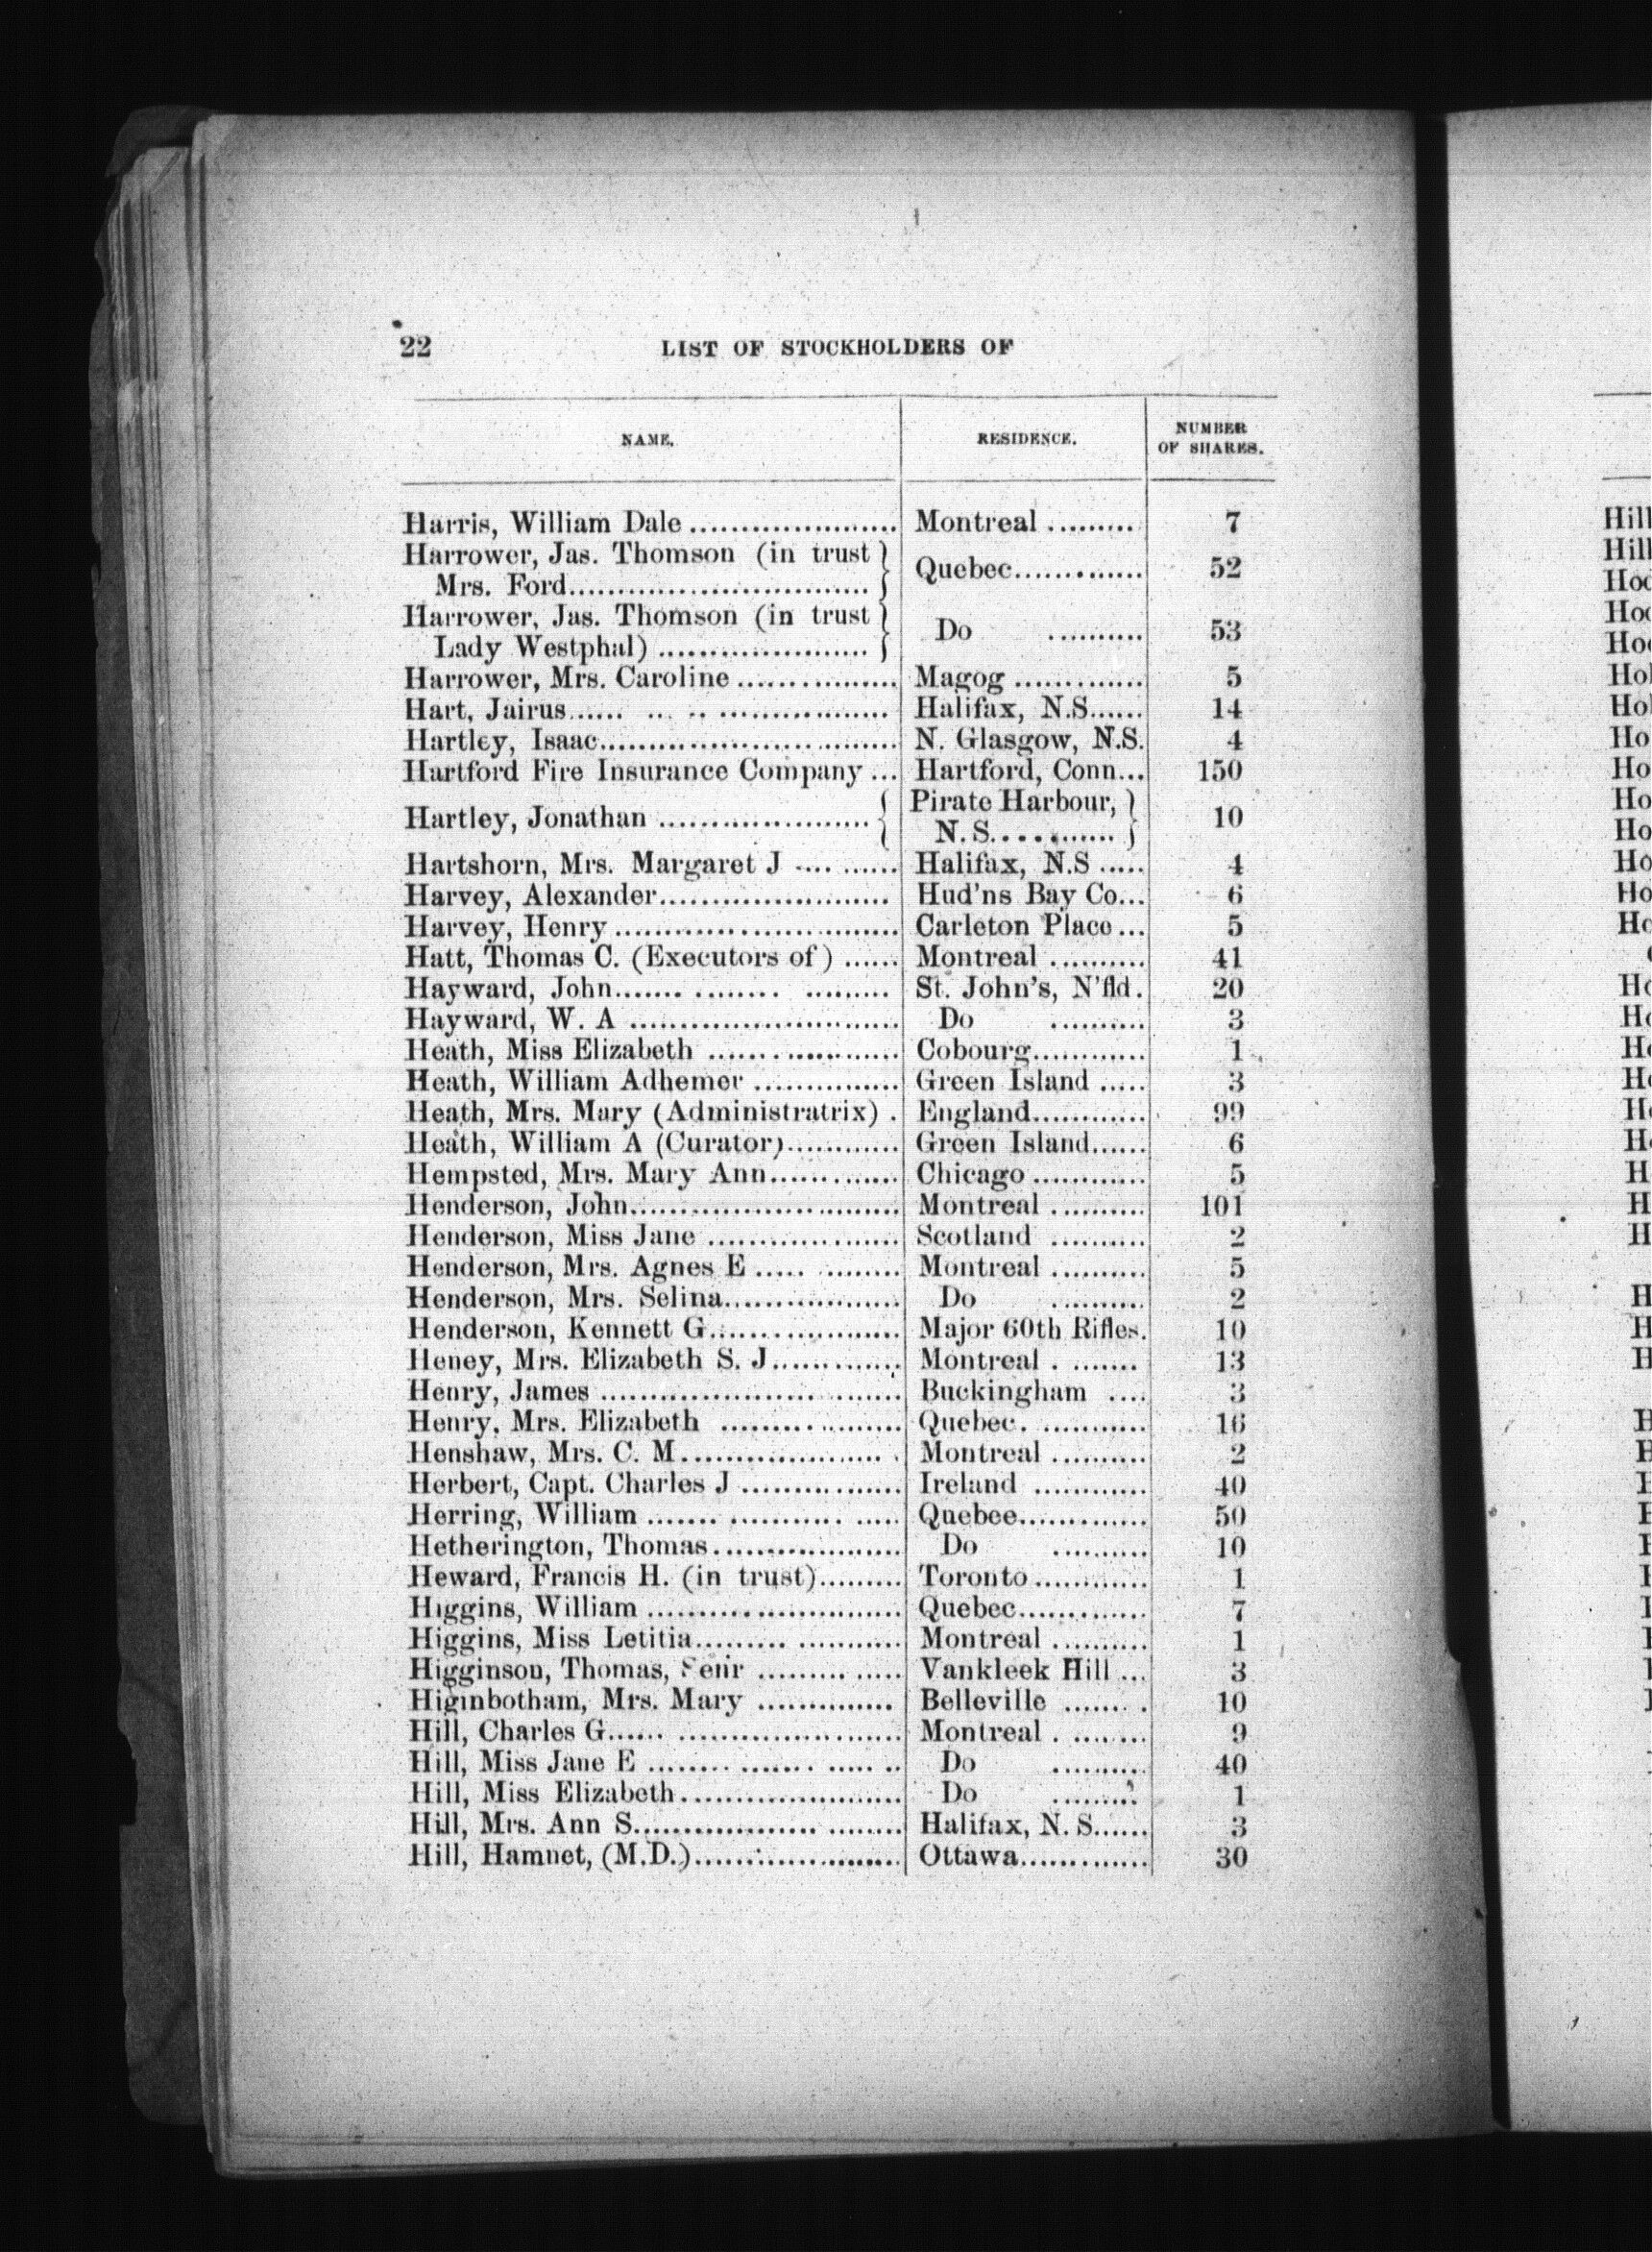 22 LIST OF STOCKHOLDERS OF
NAME. RESIDENCE. NUMBER OF SHARES.
Harris, William Dale .................... Montreal ......... 7
Harrower, Jas. Thomson (in trust
Mrs. Ford............................. Quebec............. 52
Harrower, Jas. Thomson (in trust
Lady Westphal) ..................... Do .......... 53
Harrower, Mrs. Caroline ................ Magog ............. 5
Hart, Jairus...... ... .. ................. Halifax, N.S...... 14
Hartley, Isaac............................. N. Glasgow, N.S. 4
Hartford Fire Insurance Company ... Hartford, Conn... 150
Hartley, Jonathan ..................... Pirate Harbour, N.S............ 10
Hartshorn, Mrs. Margaret J .... ...... Halifax, N.S ..... 4
Harvey, Alexander....................... Hud'ns Bay Co... 6
Harvey, Henry ............................ Carleton Place ... 5
Hatt, Thomas C. (Executors of) ...... Montreal .......... 41
Hayward, John....... ........ ......... St. John's, N'fld. 20
Hayward, W. A ........................... Do .......... 3
Heath, Miss Elizabeth ................... Cobourg............ 1
Heath, William Adhemer ............... Green Island ..... 3
Heath, Mrs. Mary (Administratrix) . England............ 99
Heath, William A (Curator)............ Green Island...... 6
Hempsted, Mrs. Mary Ann............. Chicago ............ 5
Henderson, John........................... Montreal .......... 101
Henderson, Miss Jane ................... Scotland .......... 2
Henderson, Mrs. Agnes E ..... ........ Montreal .......... 5
Henderson, Mrs. Selina.................. Do .......... 2
Henderson, Kennett G................... Major 60th Rifles. 10
Heney, Mrs. Elizabeth S. J............. Montreal . ....... 13
Henry, James ..................... ....... Buckingham .... 3
Henry, Mrs. Elizabeth .......... ........ Quebec. ........... 16
Henshaw, Mrs. C. M.................... . Montreal .......... 2
Herbert, Capt. Charles J ................ Ireland ............ 40
Herring, William ....... ........... ..... Quebec............. 50
Hetherington, Thomas................... Do .......... 10
Heward, Francis H. (in trust)......... Toronto ............ 1
Higgins, William .......................... Quebec............. 7
Higgins, Miss Letitia......... ........... Montreal .......... 1
Higginson, Thomas, Senr ......... ..... Vankleek Hill ... 3
Higinbotham, Mrs. Mary .............. Belleville ....... . 10
Hill, Charles G...... ....................... Montreal . ....... 9
Hill, Miss Jane E ........ ....... ..... .. Do .......... 40
Hill, Miss Elizabeth...................... Do ......... 1
Hill, Mrs. Ann S................... ........ Halifax, N. S...... 3
Hill, Hamnet, (M.D.)..................... Ottawa............. 30
Hill
Hill